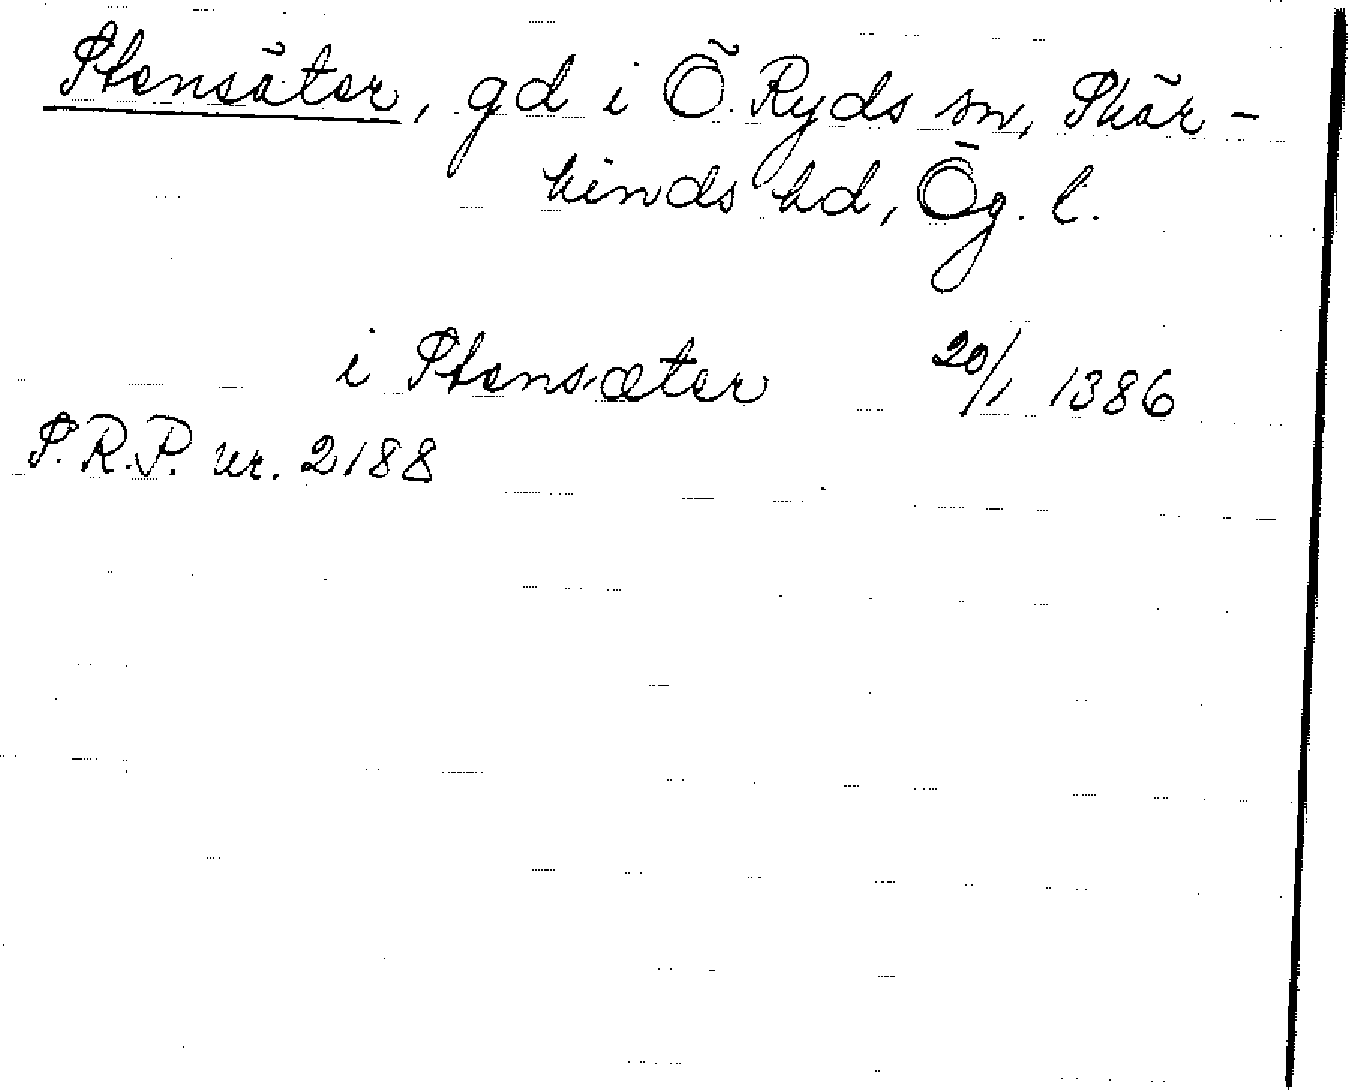 Stensäter, gd i Ö. Ryds sn, Skär-
kinds hd, Ög. l.
i Stensæter 20/1 1386
S.R.P. nr. 2188